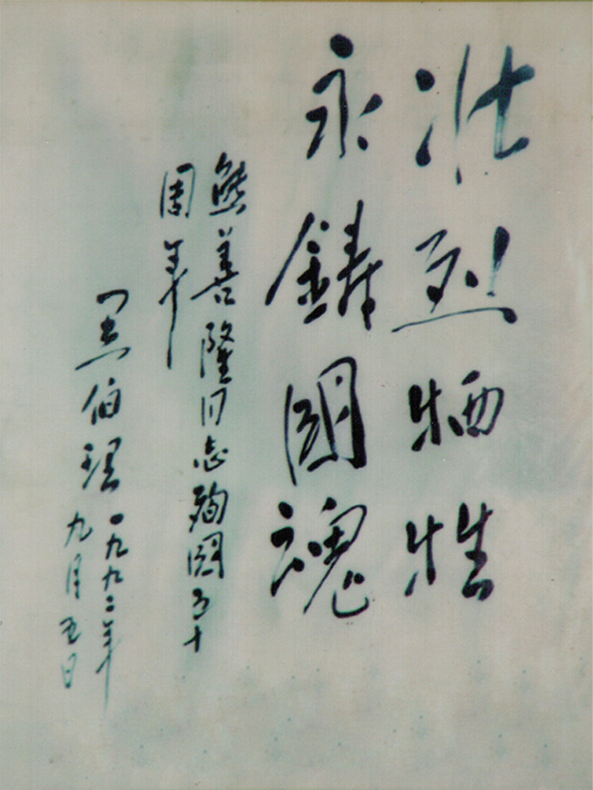 壮烈牺牲
永鑄國魂
熊善隆同志殉國五十
周年
黑伯理 一九九二年
九月五日